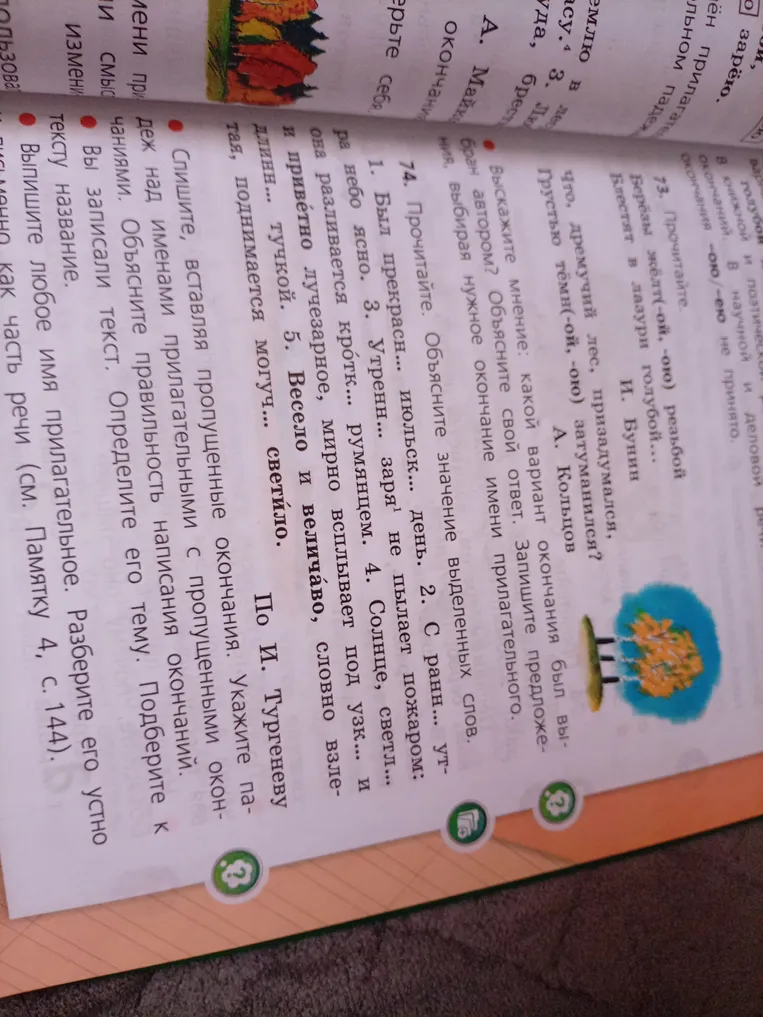 голубой
В книжной и поэтической
окончаний. В научной и деловой речи
окончания -ою/-ею не принято.
73. Прочитайте.
Берёзы жёлт(-ой, -ою) резьбой
Блестят в лазури голубой...
И. Бунин
Что, дремучий лес, призадумался,
Грустью тёмн(-ой, -ою) затуманился?
А. Кольцов
• Выскажите мнение: какой вариант окончания был вы-
бран автором? Объясните свой ответ. Запишите предложе-
ния, выбирая нужное окончание имени прилагательного.
74. Прочитайте. Объясните значение выделенных слов.
1. Был прекрасн... июльск... день. 2. С ранн... ут-
ра небо ясно. 3. Утренн... заря¹ не пылает пожаром:
она разливается кро́тк... румянцем. 4. Солнце, светл...
и приве́тно лучезарное, мирно всплывает под узк... и
длинн... тучкой. 5. Весело и велича́во, словно взле-
тая, поднимается могуч... свети́ло.
По И. Тургеневу
• Спишите, вставляя пропущенные окончания. Укажите па-
деж над именами прилагательными с пропущенными окон-
чаниями. Объясните правильность написания окончаний.
• Вы записали текст. Определите его тему. Подберите к
тексту название.
• Выпишите любое имя прилагательное. Разберите его устно
и письменно как часть речи (см. Памятку 4, с. 144).
зарёю.
А. Май
окончани
ерьте себ
мени при
измени